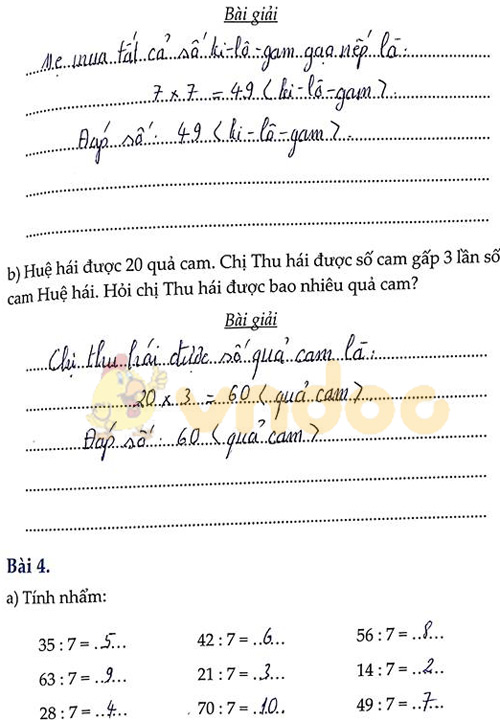 Bài giải
Mẹ mua tất cả số ki-lô-gam gạo nếp là:
7 x 7 = 49 (ki-lô-gam).
Đáp số: 49 (ki-lô-gam).
b) Huệ hái được 20 quả cam. Chị Thu hái được số cam gấp 3 lần số
cam Huệ hái. Hỏi chị Thu hái được bao nhiêu quả cam?
Bài giải
Chị thu hái được số quả cam là:
20 x 3 = 60 (quả cam)
Đáp số: 60 (quả cam)
vndoc
Bài 4.
a) Tính nhẩm:
35 : 7 = ..5... 42 : 7 = ..6... 56 : 7 = ..8...
63 : 7 = ..9... 21 : 7 = ..3... 14 : 7 = ..2...
28 : 7 = ..4... 70 : 7 = ..10.. 49 : 7 = ..7...